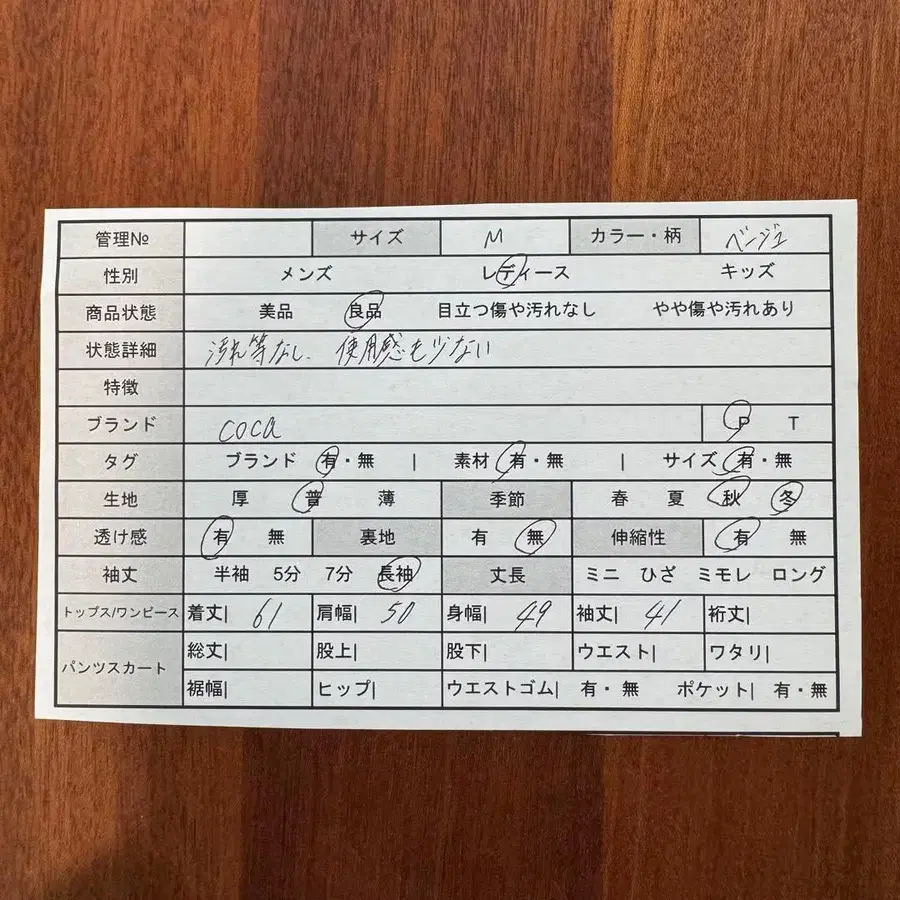 管理№ サイズ M カラー・柄 ベージュ
性別 メンズ レディース キッズ
商品状態 美品 良品 目立つ傷や汚れなし やや傷や汚れあり
状態詳細 汚れ等なし、使用感も少ない
特徴
ブランド coca P T
タグ ブランド 有・無 | 素材 有・無 | サイズ 有・無
生地 厚 普 薄 季節 春 夏 秋 冬
透け感 有 無 裏地 有 無 伸縮性 有 無
袖丈 半袖 5分 7分 長袖 丈長 ミニ ひざ ミモレ ロング
トップス/ワンピース 着丈| 61 肩幅| 50 身幅| 49 袖丈| 41 裄丈|
パンツスカート 総丈| 股上| 股下| ウエスト| ワタリ|
裾幅| ヒップ| ウエストゴム| 有・無 ポケット| 有・無